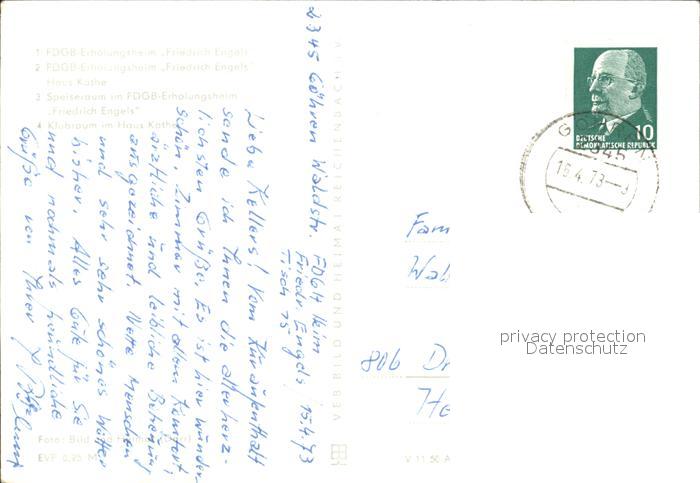 1 FDGB-Erholungsheim „Friedrich Engels"
2 FDGB-Erholungsheim „Friedrich Engels"
Haus Käthe
3 Speiseraum im FDGB-Erholungsheim
„Friedrich Engels"
4 Klubraum im Haus Käthe
2345 Göhren Waldstr.
FDGB Heim
Friedr. Engels
Tisch 75
15.4.73
Liebe Kellers! Vom Kuraufenthalt
sende ich Ihnen die allerherz-
lichsten Grüße. Es ist hier wunder-
schön, Zimmer mit allem Komfort,
ärztliche und leibliche Betreuung
ausgezeichnet. Nette Menschen
und sehr sehr schönes Wetter
bisher. Alles Gute für Sie
und nochmals freundliche
Grüße von Ihrer
Foto: Bild und Heimat
EVP 0,25 M
VEB BILD UND HEIMAT REICHENBACH i. V.
V 11 50 A
DEUTSCHE
DEMOKRATISCHE REPUBLIK
10
345
16.4.73
Fam
806 Dr
privacy protection
Datenschutz